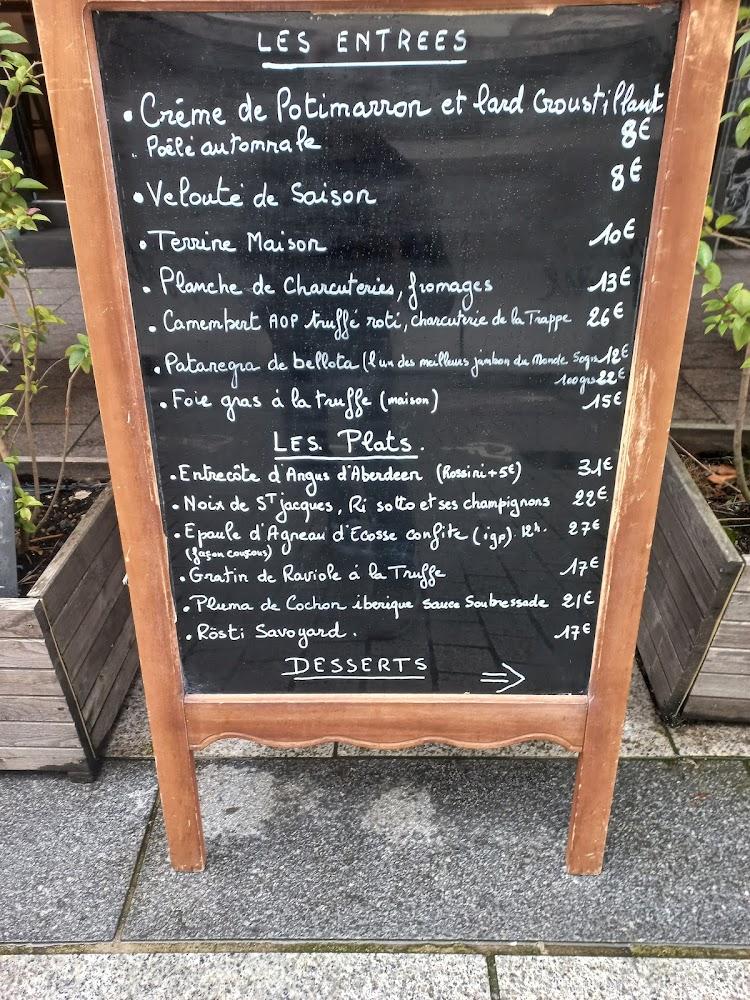 LES ENTREES
• Créme de Potimarron et lard Croustillant
Poêlé automnale 8€
• Velouté de Saison 8€
• Terrine Maison 10€
• Planche de Charcuteries, fromages 13€
• Camembert AOP truffé roti, charcuterie de la Trappe 26€
• Patanegra de bellota (l'un des meilleurs jambon du Monde 50grs 12€
100grs 22€
• Foie gras à la truffe (maison) 15€
LES Plats.
• Entrecôte d'Angus d'Aberdeen (Rossini +5€) 31€
• Noix de ST jacques, Ri sotto et ses champignons 22€
• Epaule d'Agneau d'Ecosse confite (igp) 12h. 27€
(façon couscous)
• Gratin de Raviole á la Truffe 17€
• Pluma de Cochon iberique sauce Soubressade 21€
• Rösti Savoyard. 17€
DESSERTS ⇒